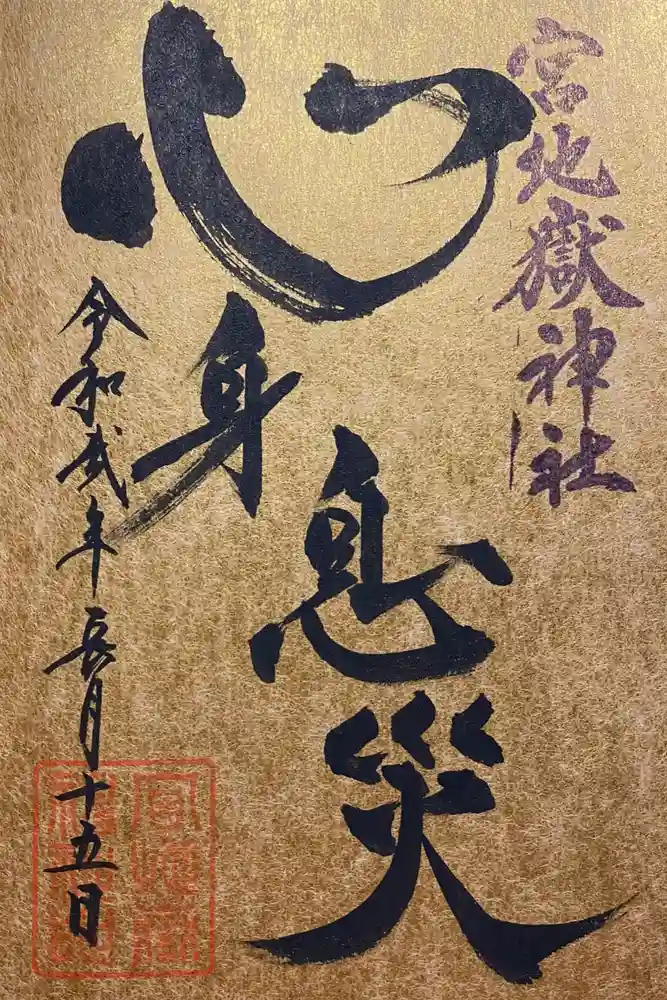 宮地嶽神社
心身息災
令和弐年長月十五日